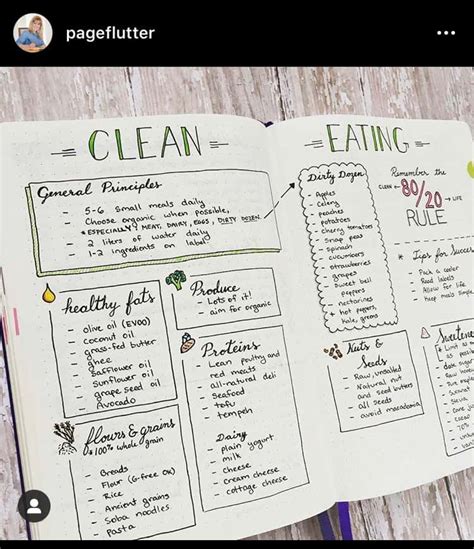 pageflutter
CLEAN
EATING
General Principles
- 5-6 small meals daily
- Choose organic when possible,
*ESPECIALLY: MEAT, DAIRY, EGGS, DIRTY DOZEN
- 2 liters of water daily
- 1-2 ingredients on label
healthy fats
- olive oil (EVOO)
- coconut oil
- grass-fed butter
- ghee
- Safflower oil
- Sunflower oil
- grape seed oil
- Avocado
Produce
- Lots of it!
- aim for organic
flours & grains
* 100% whole grain
- Breads
- Flour (G-free OK)
- Rice
- Ancient grains
- Soba noodles
- Pasta
Proteins
- Lean poultry and
red meats
- all-natural deli
- Seafood
- tofu
- tempeh
Dairy
- plain yogurt
- milk
- cheese
- cream cheese
- cottage cheese
Dirty Dozen
- Apples
- Celery
- peaches
- potatoes
- cherry tomatoes
- Snap peas
- Spinach
- cucumbers
- strawberries
- grapes
- Sweet bell
peppers
- nectarines
+ hot peppers,
Kale, greens
Remember the
CLEAN 80/20 LIFE
RULE
* Tips for Success
- Pack a cooler
- Read labels
- Allow for life
- Keep meals simple
Nuts &
Seeds
- Raw, unsalted
- Natural nut
and seed butters
- all seeds
- avoid macadamia